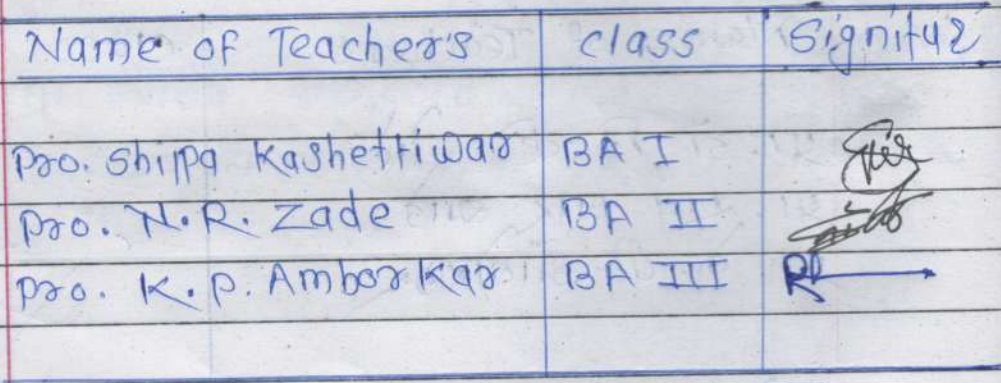 Name of Teacher's class Signitur
Pro. Shilpa Kashettiwar BA I
Pro. N.R. Zade BA II
Pro. K.P. Amborkar BA III